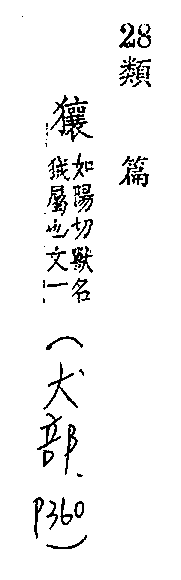 28類篇
獽
如陽切獸名
狨屬也文一
(犬部、P360)